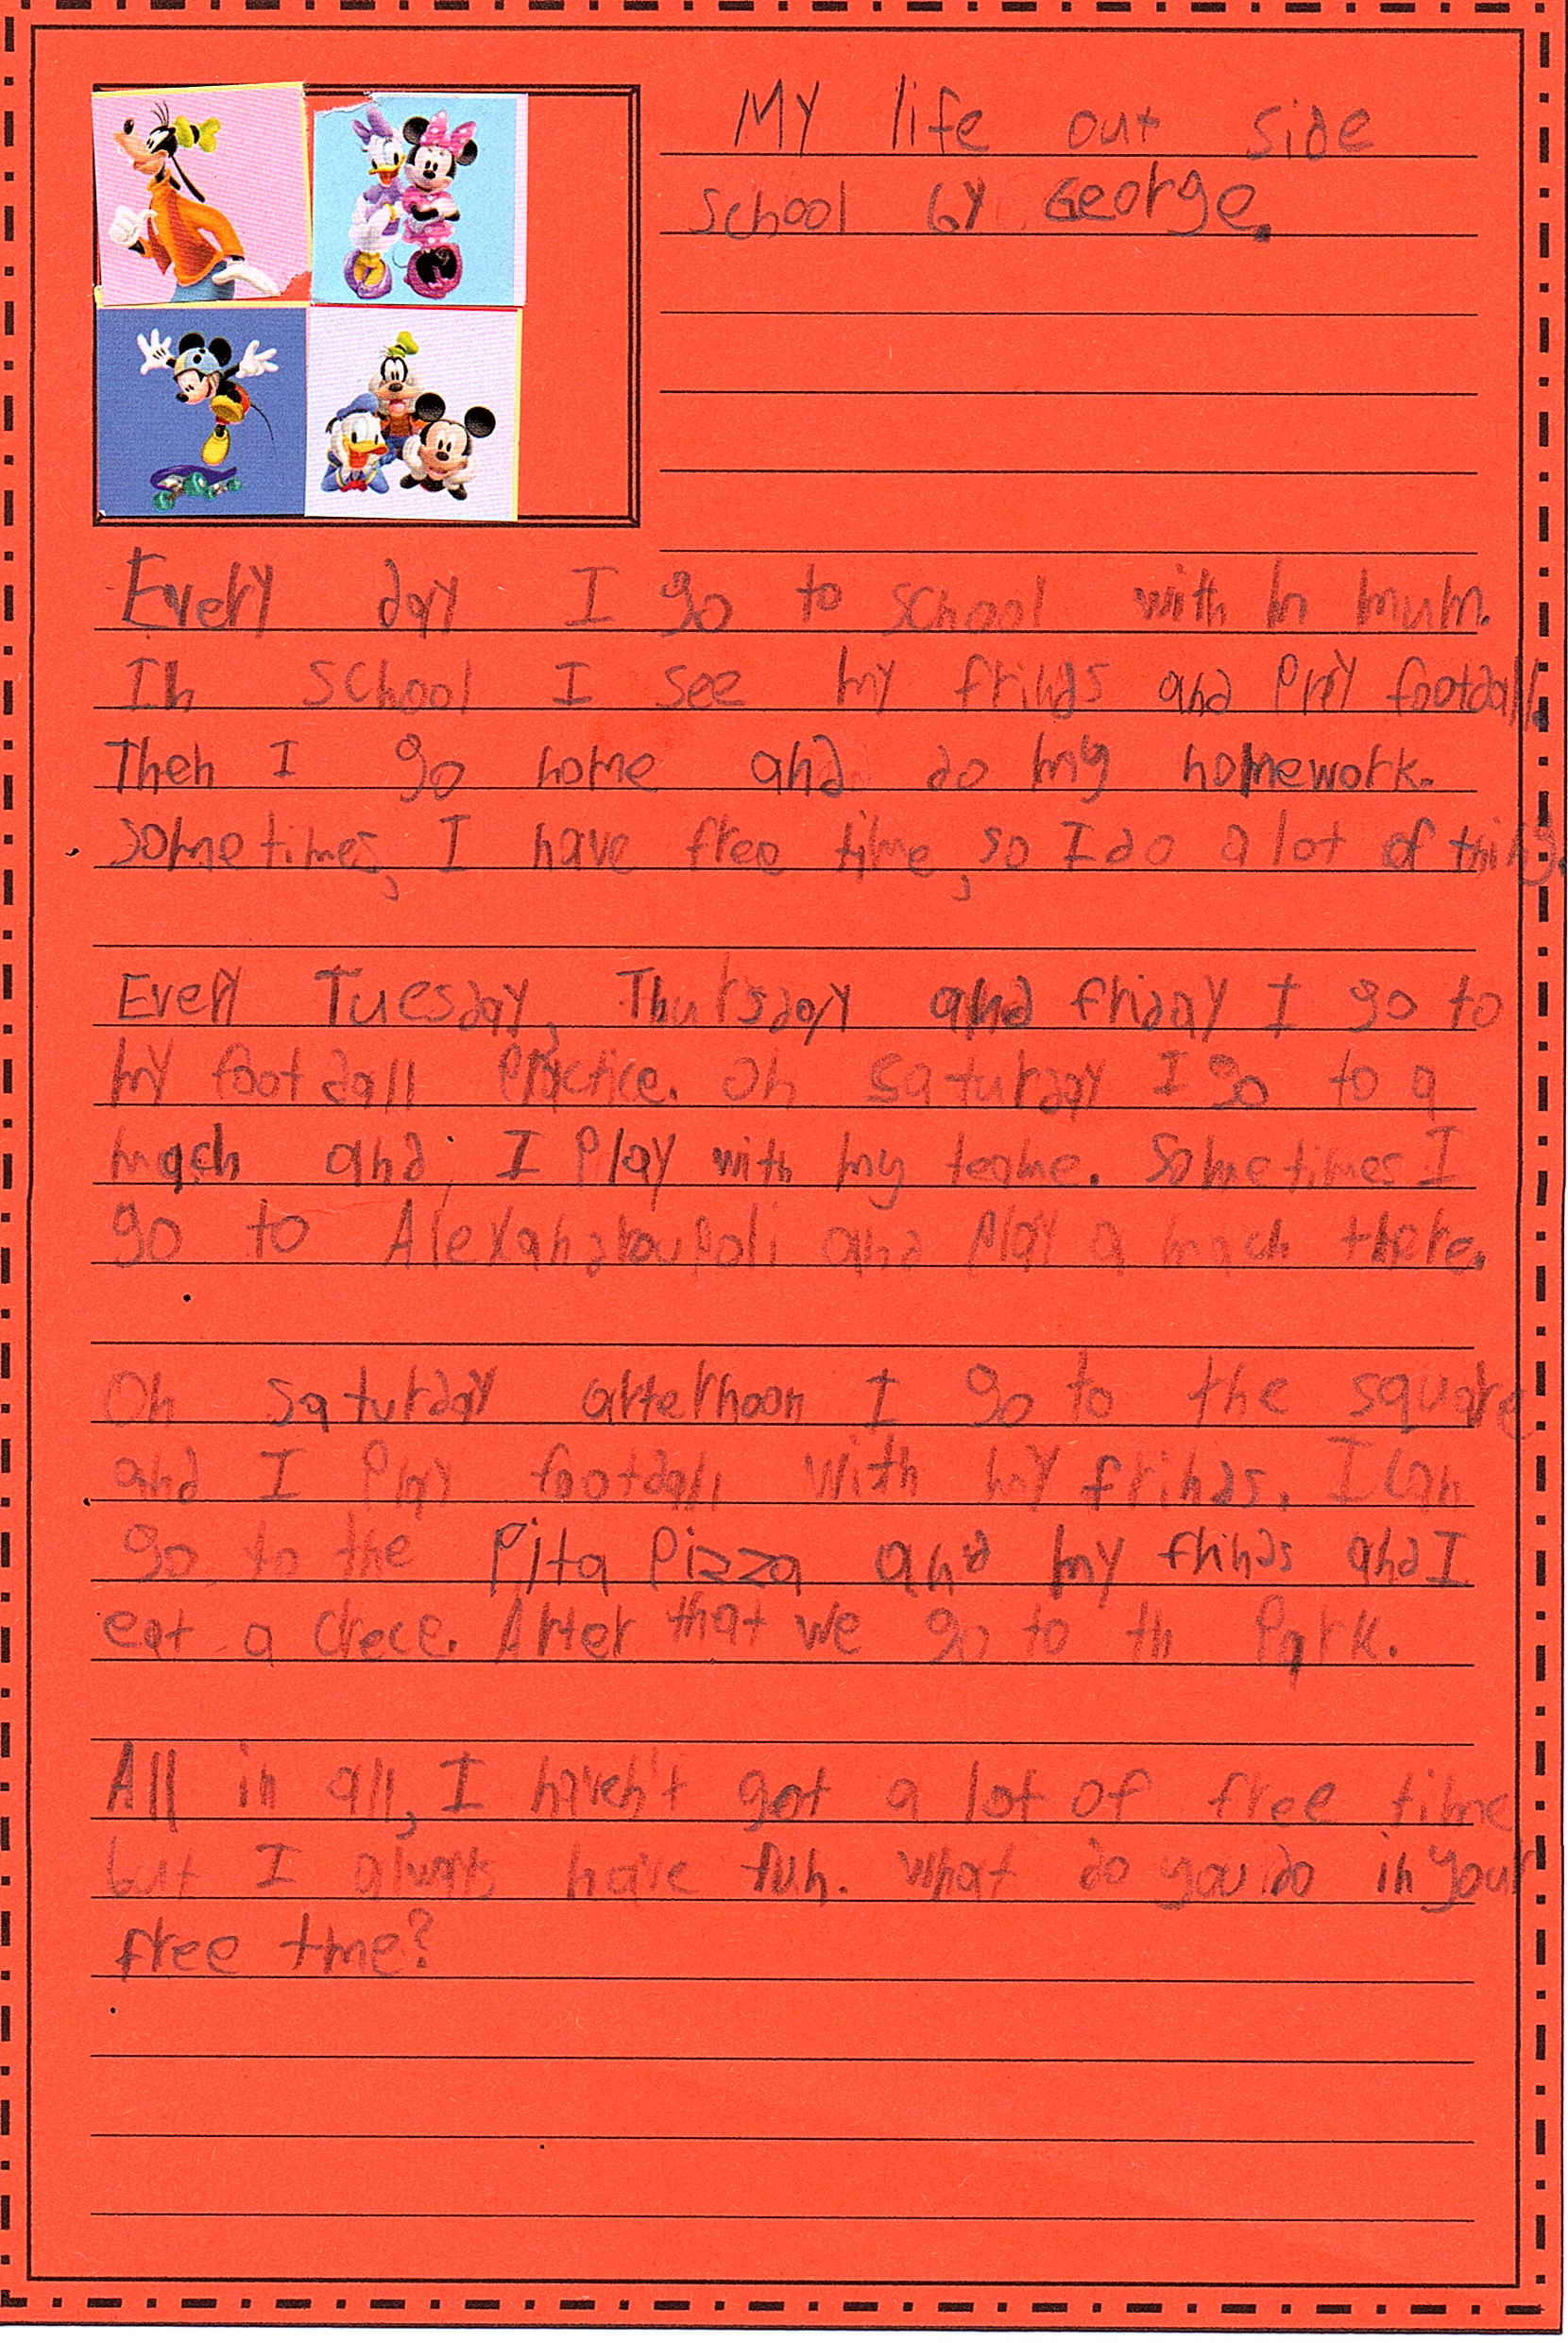 My life out side
school by George.
Every day I go to school with m mum.
In school I see my frinds and play football.
Then I go home and do my homework.
Sometimes, I have free time, so I do a lot of things.
Every Tuesday, Thursday and friday I go to
my football practice. On saturday I go to a
mach and, I play with my teame. Sometimes I
go to Alexandroupoli and play a mach there.
On saturday afternoon I go to the square
and I play football with my frinds. I can
go to the Pita Pizza and my frinds and I
eat a crece. After that we go to th park.
All in all, I haven't got a lot of free time
but I always have fun. What do you do in your
free tme?